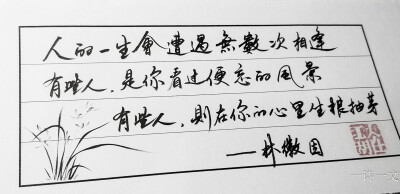 人的一生會遭遇無數次相逢
有些人，是你看过便忘的风景
有些人，則在你的心里生根抽芽
——林徽因